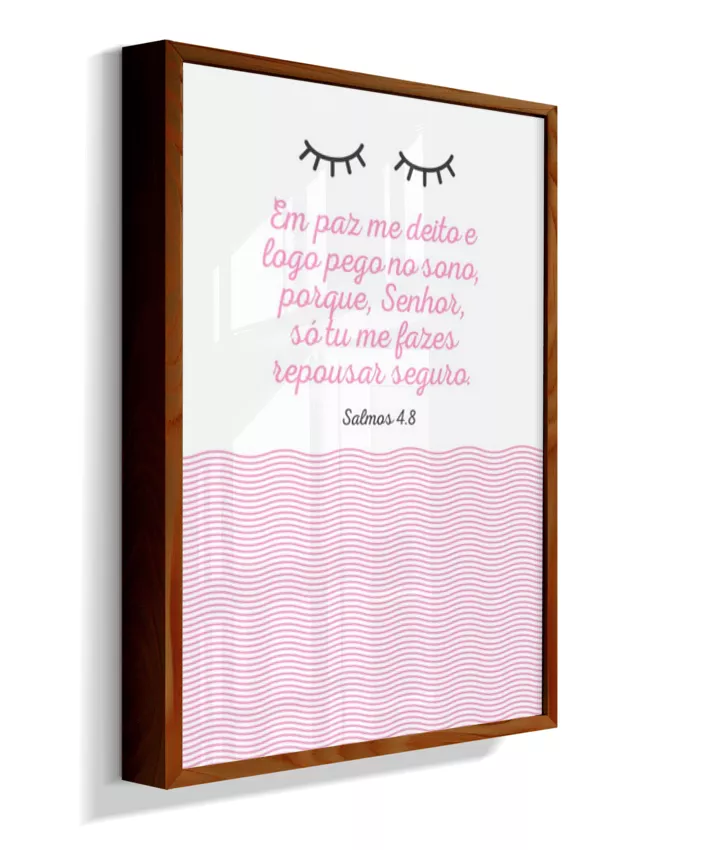 Em paz me deito e
logo pego no sono,
porque, Senhor,
só tu me fazes
repousar seguro.
Salmos 4.8